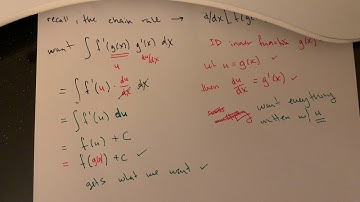 recall, the chain rule → d/dx [f(g(
want ∫ f'(g(x)) g'(x) dx
u du/dx
= ∫ f'(u) · du/dx · dx
= ∫ f'(u) du
= f(u) + C
= f(g(x)) + C ✓
gets what we want ✓
ID inner function g(x)
let u = g(x) ✓
then du/dx = g'(x) ✓
want everything
written w/ u